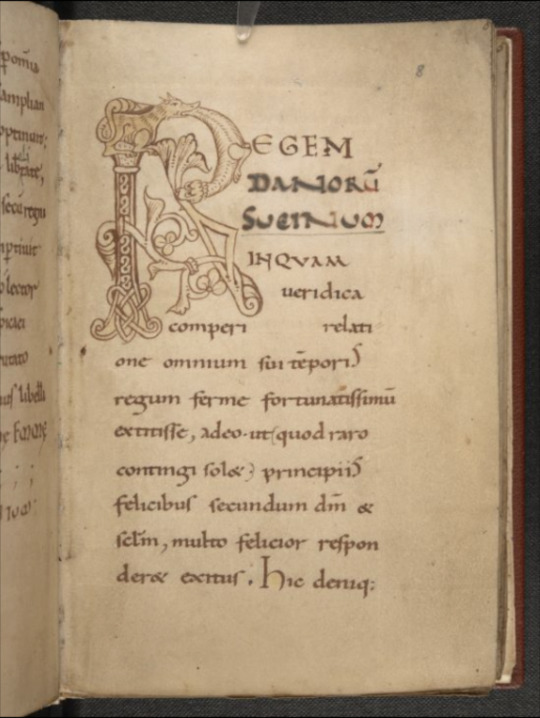 pomu
amplian
optinuit;
librate,
secu regu
mptiuit
lector
picaci
putato
us libelli
8
REGEM
DANIORŪ
SUEINUM
INQVAM
ueridica
comperi relati
one omnium sui tēporis
regum ferme fortunatissimū
extitisse, adeo ut (quod raro
contingi solæ) principiis
felicibus secundum dm̄ &
sclm̄, multo felicior respon
deræ exitus. Hic deniq;